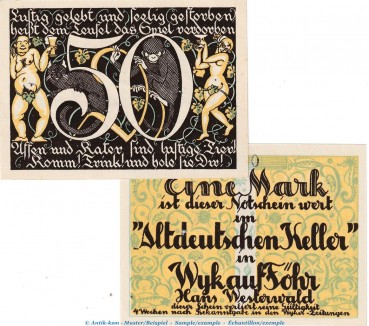 Lustig gelebt und seelig gestorben
heißt dem Teufel das Spiel verdorben
50
Affen und Kater, sind lustige Tier!
Komm! Trink! und hole sie Dir!
Eine Mark
ist dieser Notschein wert
im
"Altdeutschen Keller"
in
Wyk auf Föhr
Hans Westerwald
dieser Schein verliert seine Gültigkeit
4 Wochen nach Bekanntgabe in den Wyker-Zeitungen
© Antik-kom - Muster/Beispiel - Sample/exemple - Echantillon/exemple